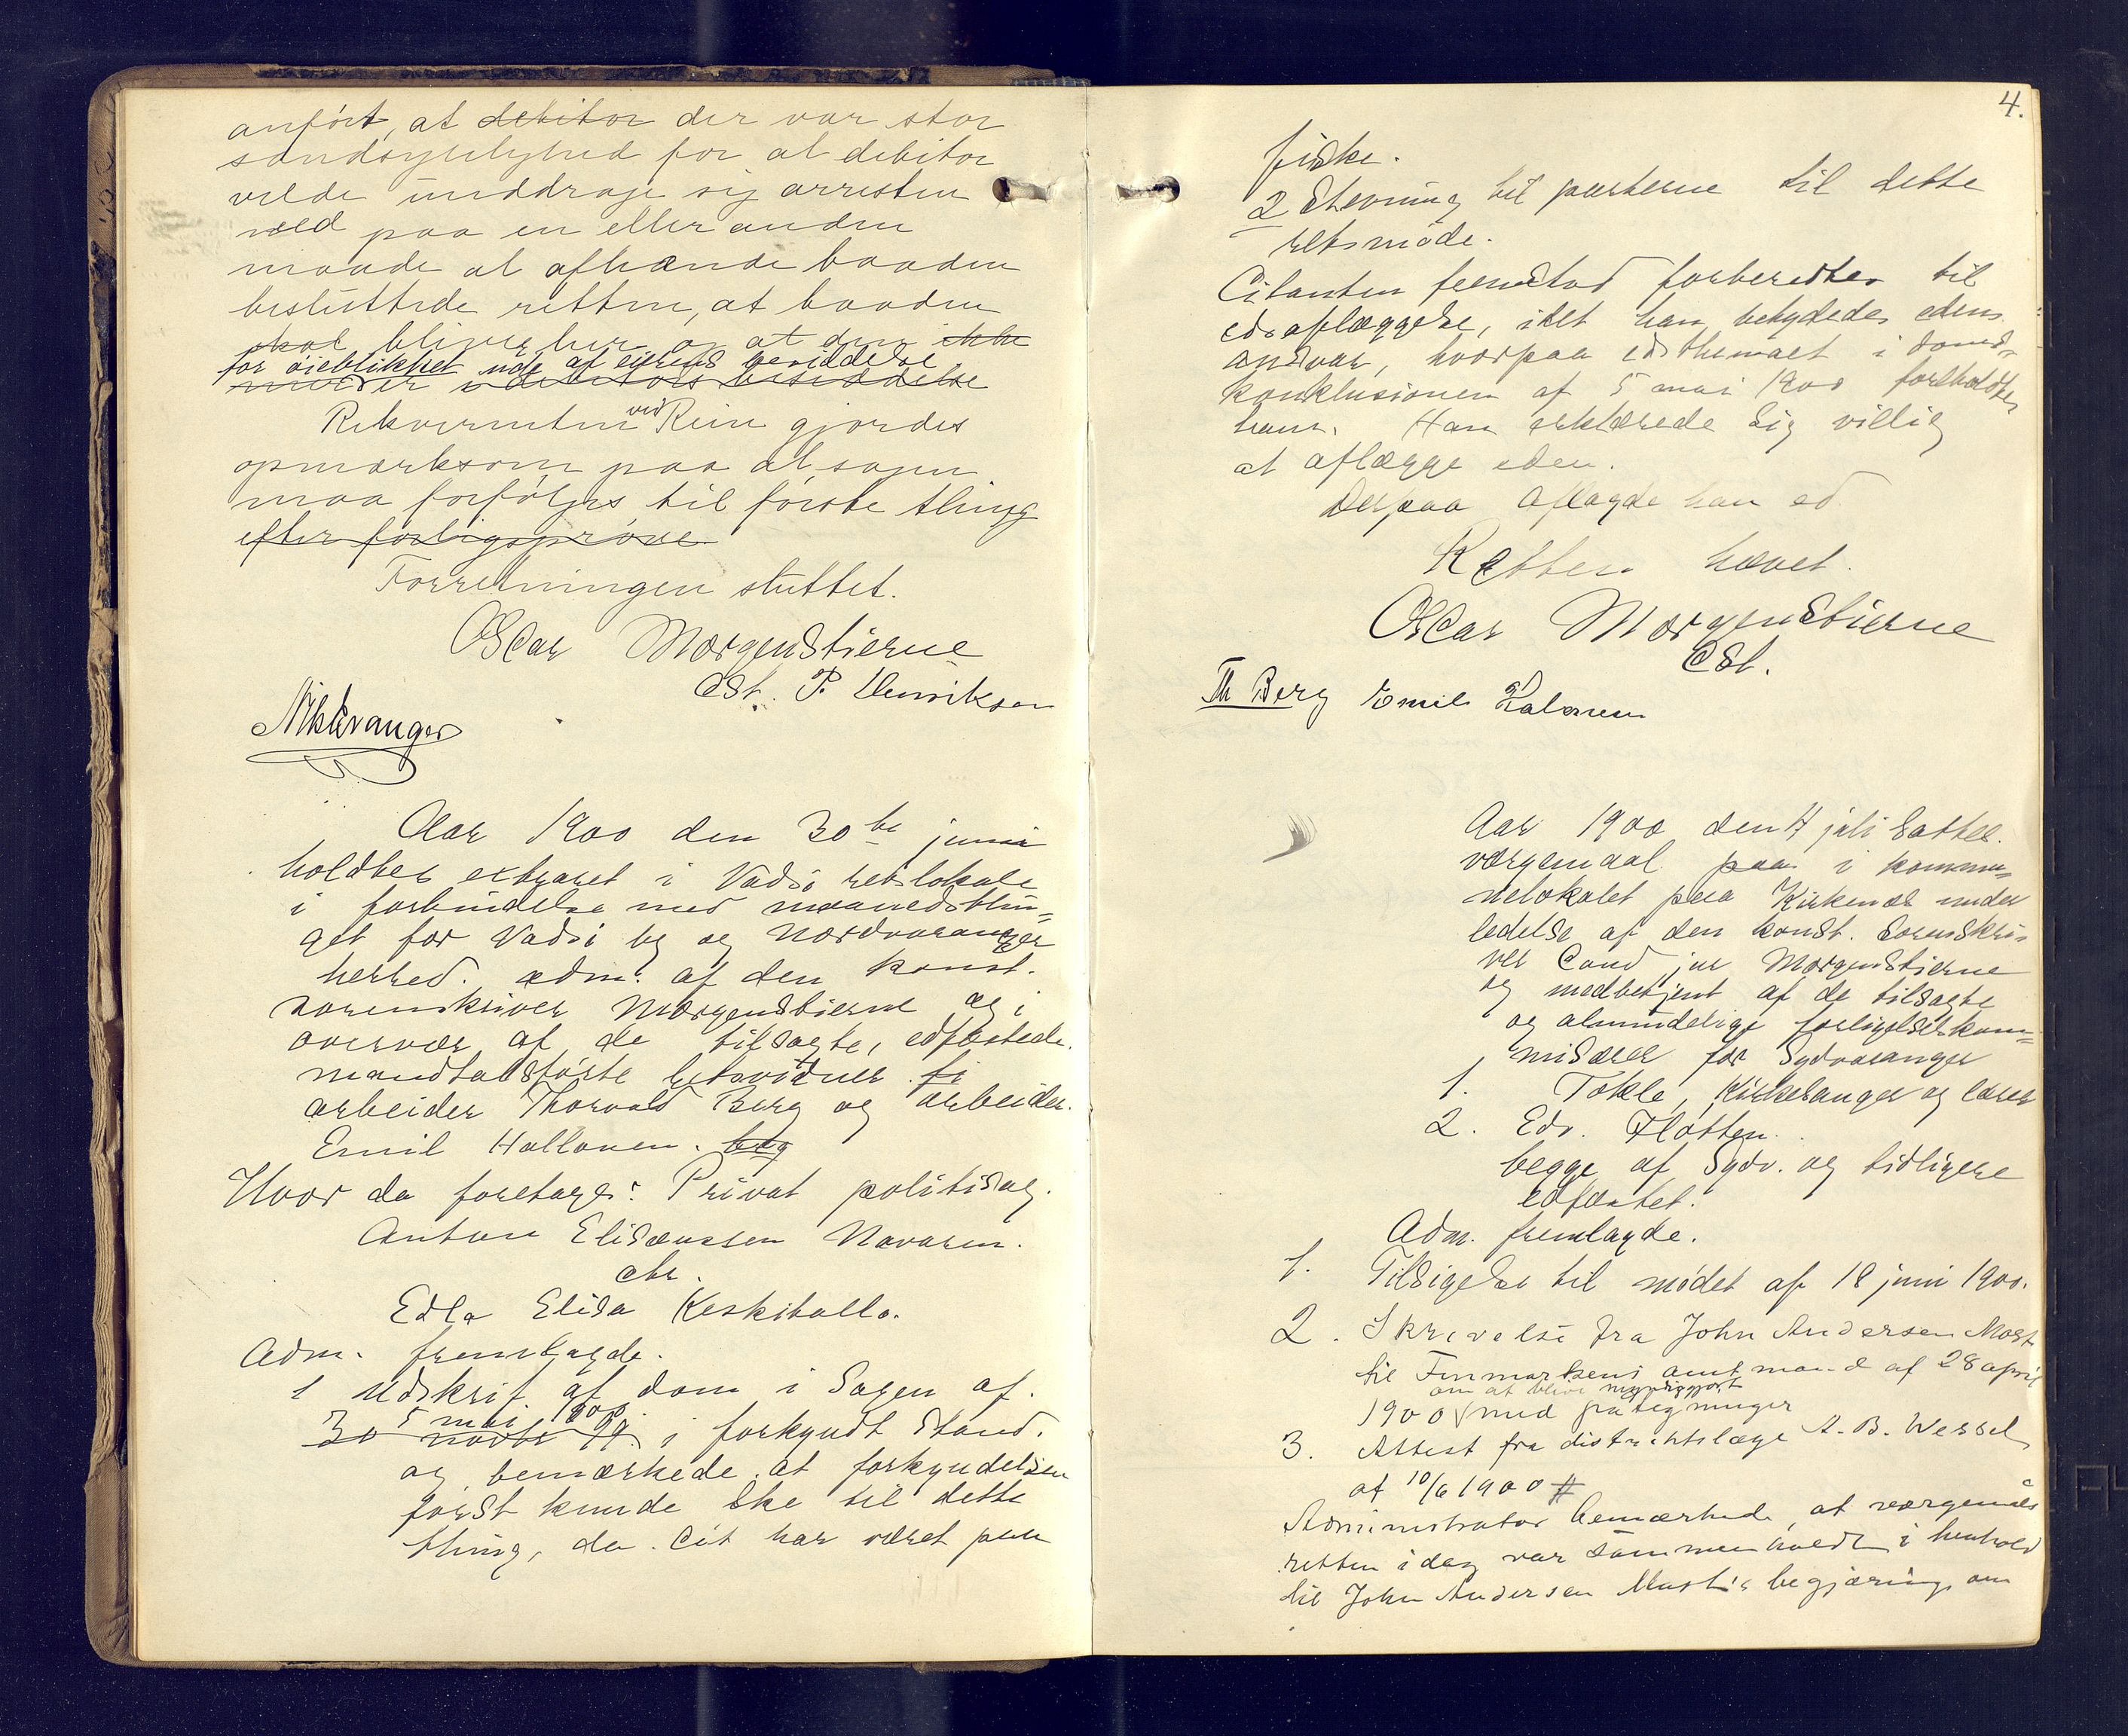 anført, at debitor der var stor
sandsynlighed for at debitor
vilde unddrage sig arresten
ved paa en eller anden
maade at afhænde baaden
besluttede retten, at baaden
skal bliver her og at den ikke
for øieblikket ude af eierens besiddelse
i debitors besiddelse
Rekvirenten ved Rein gjordes
opmærksom paa at sagen
maa forfølges til første thing
efter forligsprøve
Forretningen sluttet.
Oscar Morgenstierne
cst. P. Henriksen

Aar 1900 den 30te juni
holdtes extraret i Vadsø retslokale
i forbindelse med maanedsthin=
get for Vadsø by og Nordvaranger
herred. adm. af den konst.
sorenskriver Morgenstierne og i
overvær af de tilsagte, edfæstede
mandtalsførte retsvidner
arbeider Thorvald Berg og arbeider
Emil Hallonen. beg
Hvor da foretages: Privat politisag.
Anton Elisæussen Navaren.
ctr.
Edla Elisa Keskitallo.
Adm. fremlagde.
1 Udskrif. af dom i Sagen af.
5 mai 1900
30 novbr 99. i forkyndt stand.
og bemærkede at forkyndelsen
først kunde ske til dette
thing, da Cit har været paa
4.
fiske.
2 Stevning til parterne til dette
retsmøde.
Citanten fremstod forberedtes til
edsaflæggelse, idet han betydedes edens
ansvar, hvorpaa edsthemaet i doms=
konklusionen af 5 mai 1900 foreholdtes
ham. Han erklærede sig villig
at aflægge eden.
Derpaa aflagde han ed
Retten hævet.
Oscar Morgenstierne
cst.
Th Berg Emil Halonen
Aar 1900 den 4 juli sattes
værgemaal paa i kommu=
nelokalet paa Kirkenæs under
ledelse af den konst. Sorenskri=
ver Cand jur Morgenstierne
og medbetjent af de tilsagte
og almindelige forligelseskom=
misærer for Sydvaranger
1. Tokle, Kirkesanger og lærer
2. Edv. Fløtten.
begge af Sydv. og tidligere
edfæstet.
Adm. fremlagde.
1. Tilsigelse til mødet af 18 juni 1900.
2. Skrivelse fra John Andersen Mast
til Finmarkens amtmand af 28 april
om at blive myndiggjort
1900 med påtegninger
3. Attest fra distriktslæge A. B. Wessel
af 10/6 1900 #
Administrator bemærkede, at værgemåls
retten idag var sammenkaldt i henhold
til John Andersen Mast's begjæring om